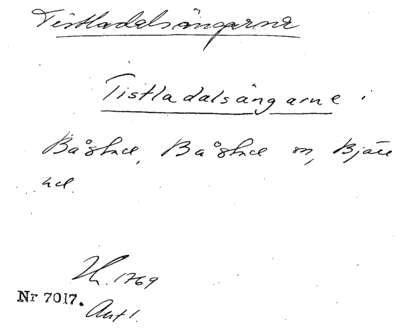 Tistladalsängarna
Tistladalsängarne i
Båstad, Båstad sn, Bjäre
hd.
1769
Nr 7017.
Avt 1.